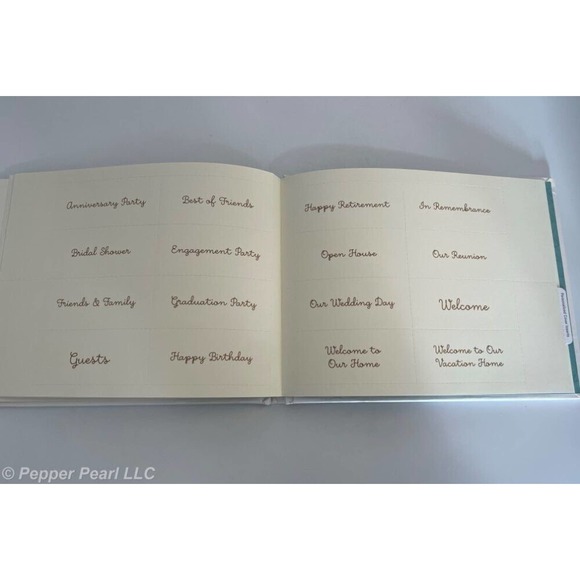 Anniversary Party
Best of Friends
Bridal Shower
Engagement Party
Friends & Family
Graduation Party
Guests
Happy Birthday
Happy Retirement
In Remembrance
Open House
Our Reunion
Our Wedding Day
Welcome
Welcome to
Our Home
Welcome to Our
Vacation Home
© Pepper Pearl LLC